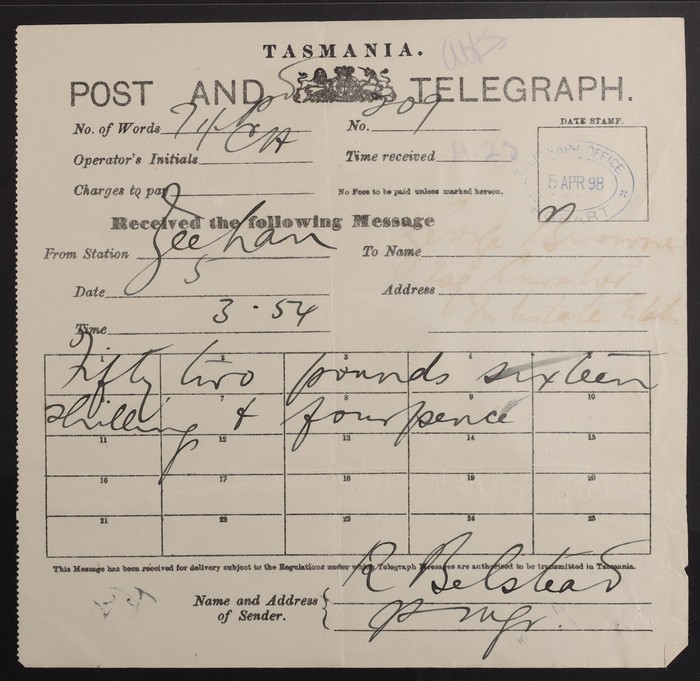 TASMANIA.
POST AND TELEGRAPH.
No. of Words
No. 209
DATE STAMP.
Operator's Initials
Time received
Charges to pay
No Fees to be paid unless marked hereon.
5 APR 98
Received the following Message
From Station Zeehan
To Name Browne
Date 5
Address
Time 3.54
1 2 3 4
Fifty two pounds sixteen
7 8 9 10
shilling & fourpence
11 12 13 14 15
16 17 18 19 20
21 22 23 24 25
This Message has been received for delivery subject to the Regulations under which Telegraph Messages are authorised to be transmitted in Tasmania.
R Belstead
Name and Address of Sender.